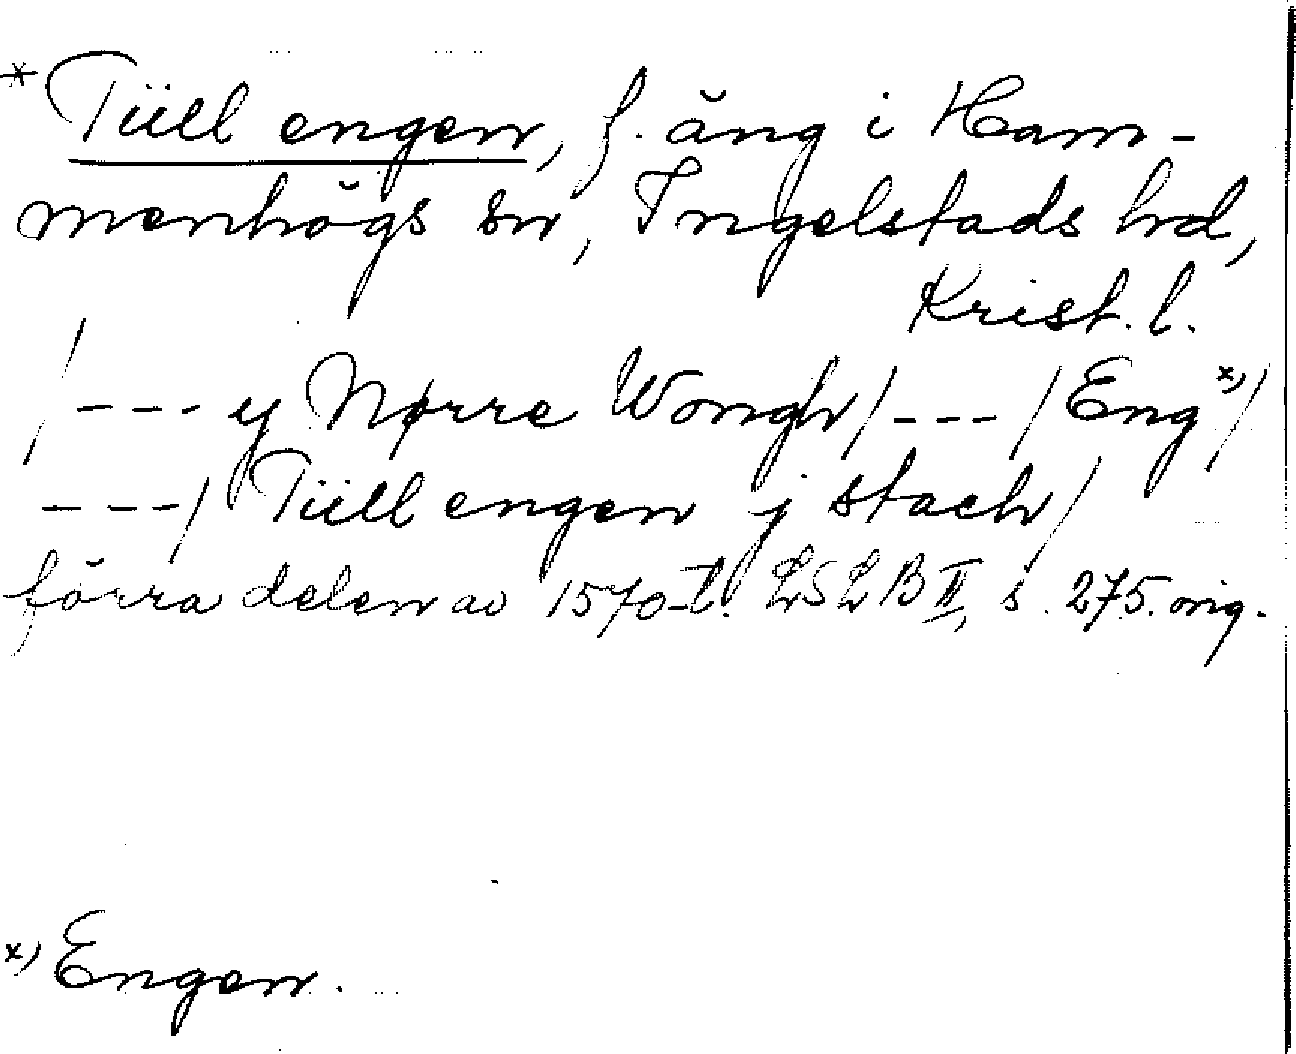 * Tüll engen, f. äng i Ham-
menhögs sn, Ingelstads hd,
Krist. l.
/--- y Nørre Wongh/---/Eng x)/
---/ Tüll engen j stach/
förra delen av 1570-t. LSLB II, s. 275. orig.
x) Engen.